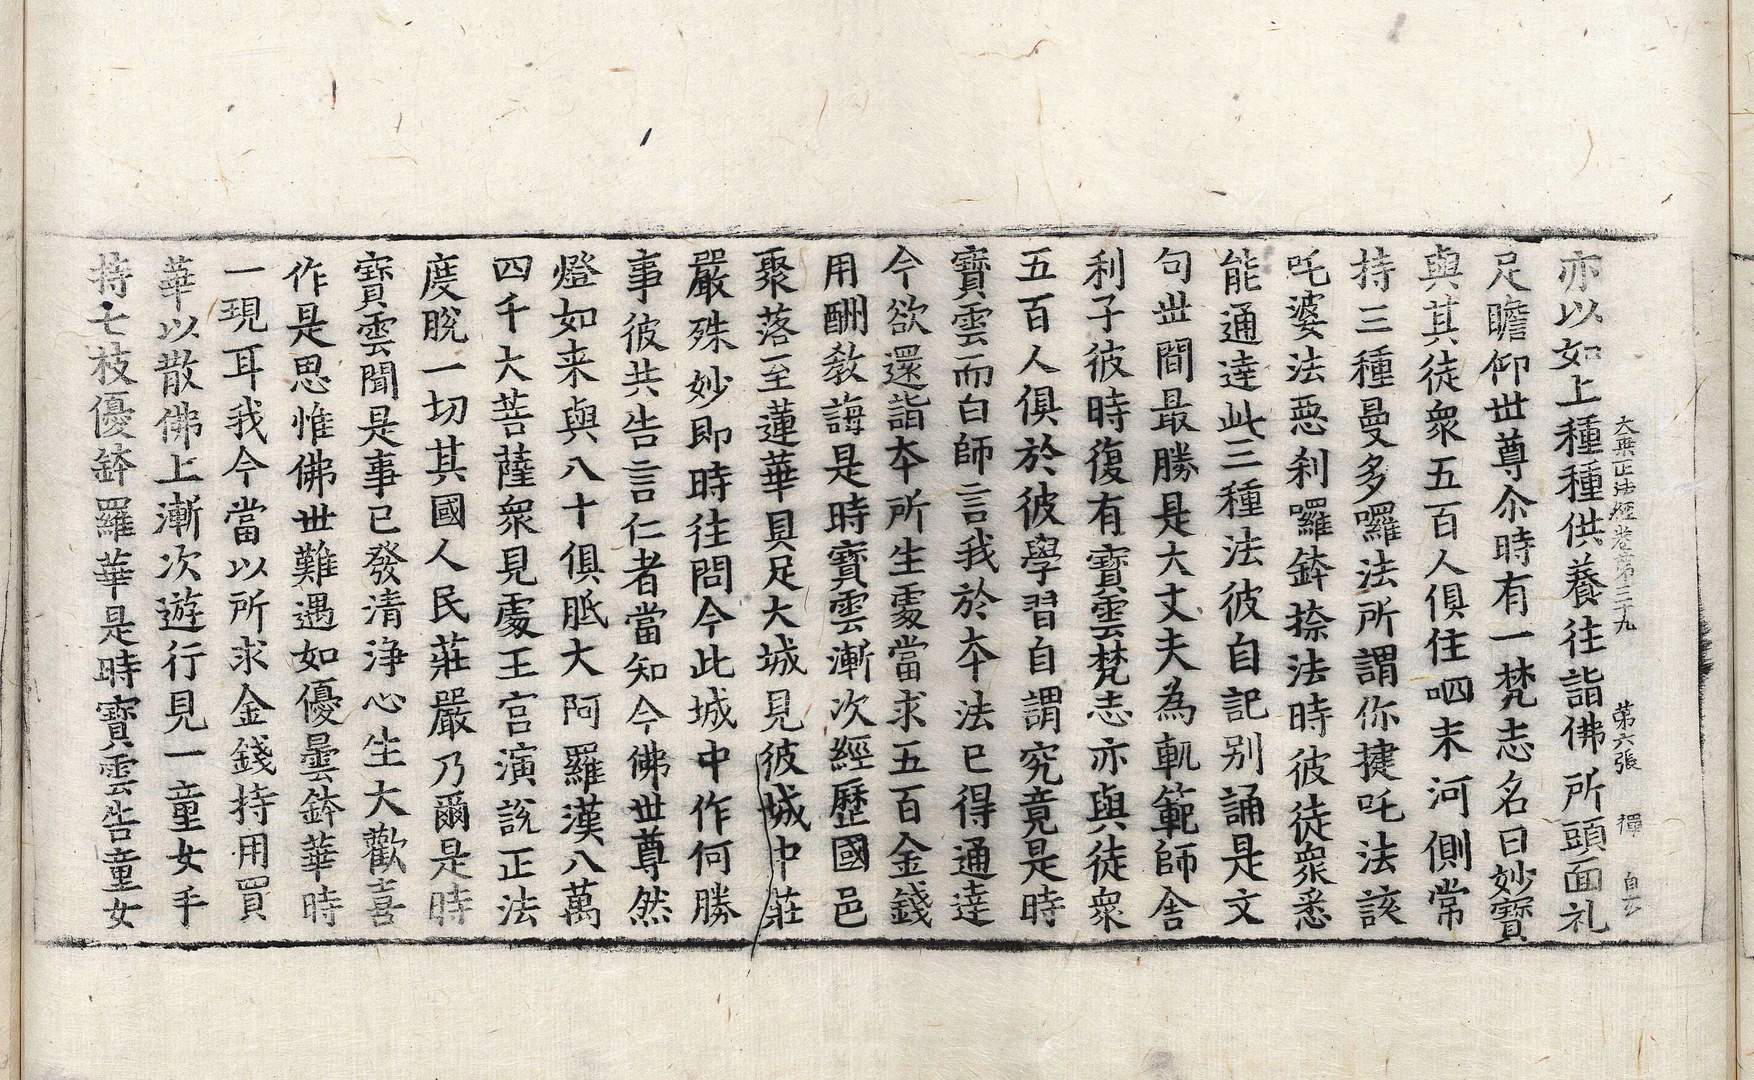 大乘正法經卷第三十九 第六張 禪 自云
亦以如上種種供養往詣佛所頭面礼
足瞻仰世尊尒時有一梵志名曰妙寶
與其徒衆五百人俱住呬末河側常
持三種曼多囉法所謂你揵吒法該
吒婆法惡刹囉鉢捺法時彼徒衆悉
能通達此三種法彼自記别誦是文
句世間最勝是大丈夫為軌範師舍
利子彼時復有寶雲梵志亦與徒衆
五百人俱於彼學習自謂究竟是時
寶雲而白師言我於夲法已得通達
今欲還詣夲所生處當求五百金錢
用酬教誨是時寶雲漸次經歷國邑
聚落至蓮華具足大城見彼城中莊
嚴殊妙即時往問今此城中作何勝
事彼共告言仁者當知今佛世尊然
燈如来與八十俱胝大阿羅漢八萬
四千大菩薩衆見處王宫演說正法
度脫一切其國人民莊嚴乃爾是時
寶雲聞是事已發清淨心生大歡喜
作是思惟佛世難遇如優曇鉢華時
一現耳我今當以所求金錢持用買
華以散佛上漸次遊行見一童女手
持七枝優鉢羅華是時寶雲告童女